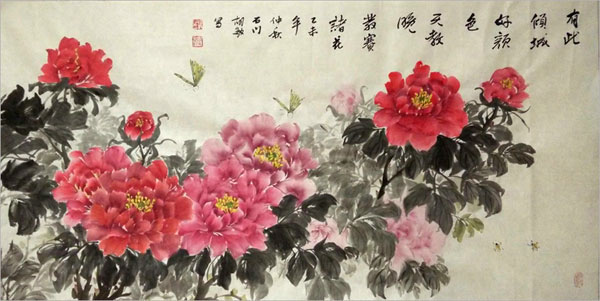 有此
傾城
好顏
色
天教
晚
發賽
諸花
乙未
年
仲秋
石川
寫